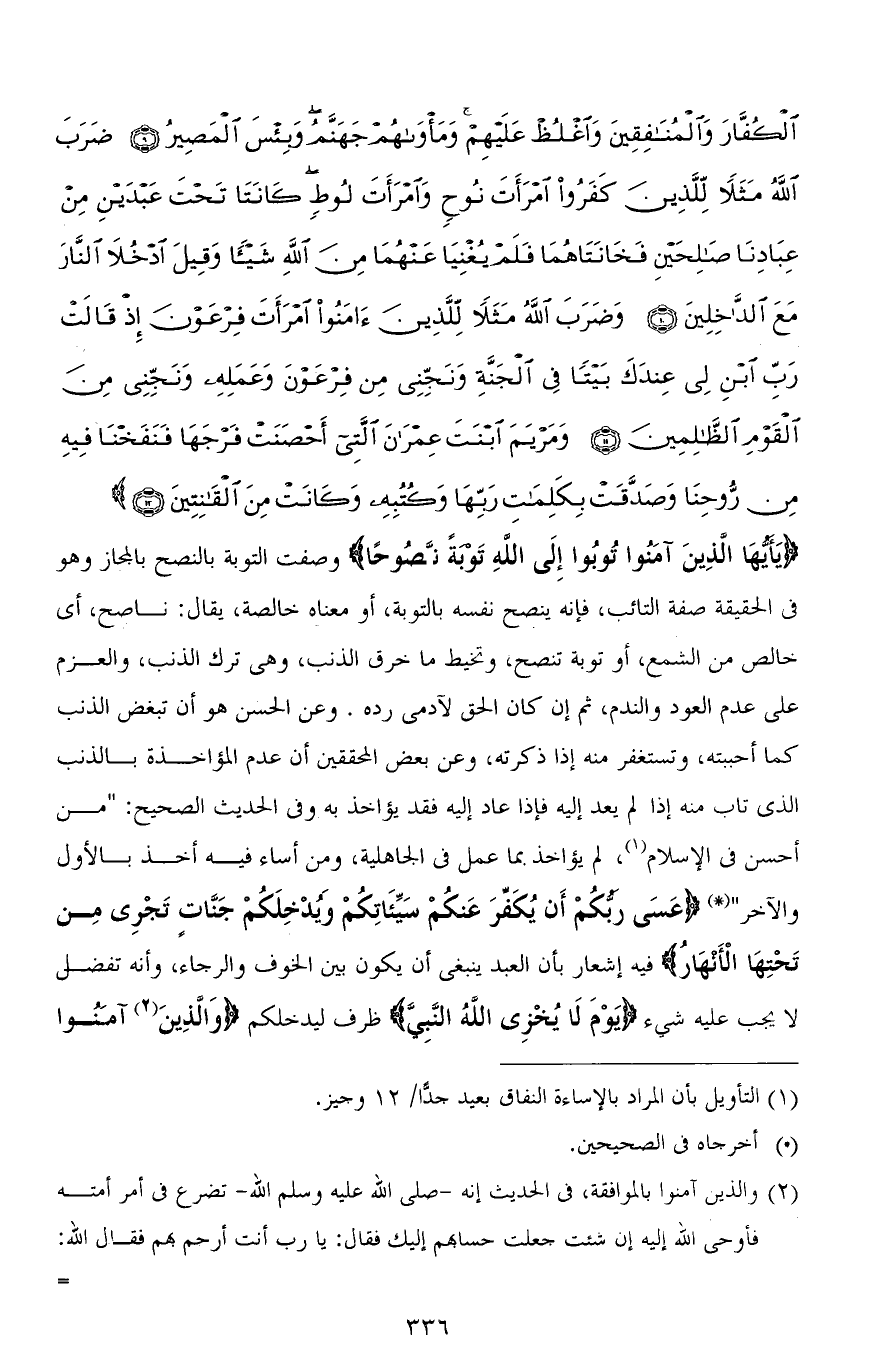 ٱلۡكُفَّارَ وَٱلۡمُنَٰفِقِينَ وَٱغۡلُظۡ عَلَيۡهِمۡۚ وَمَأۡوَىٰهُمۡ جَهَنَّمُۖ وَبِئۡسَ ٱلۡمَصِيرُ ٩ ضَرَبَ
ٱللَّهُ مَثَلًا لِّلَّذِينَ كَفَرُواْ ٱمۡرَأَتَ نُوحٍ وَٱمۡرَأَتَ لُوطٍۖ كَانَتَا تَحۡتَ عَبۡدَيۡنِ مِنۡ
عِبَادِنَا صَٰلِحَيۡنِ فَخَانَتَاهُمَا فَلَمۡ يُغۡنِيَا عَنۡهُمَا مِنَ ٱللَّهِ شَيۡـًٔا وَقِيلَ ٱدۡخُلَا ٱلنَّارَ
مَعَ ٱلدَّٰخِلِينَ ١٠ وَضَرَبَ ٱللَّهُ مَثَلًا لِّلَّذِينَ ءَامَنُواْ ٱمۡرَأَتَ فِرۡعَوۡنَ إِذۡ قَالَتۡ
رَبِّ ٱبۡنِ لِى عِندَكَ بَيۡتًا فِى ٱلۡجَنَّةِ وَنَجِّنِى مِن فِرۡعَوۡنَ وَعَمَلِهِۦ وَنَجِّنِى مِنَ
ٱلۡقَوۡمِ ٱلظَّٰلِمِينَ ١١ وَمَرۡيَمَ ٱبۡنَتَ عِمۡرَٰنَ ٱلَّتِىٓ أَحۡصَنَتۡ فَرۡجَهَا فَنَفَخۡنَا فِيهِ
مِن رُّوحِنَا وَصَدَّقَتۡ بِكَلِمَٰتِ رَبِّهَا وَكُتُبِهِۦ وَكَانَتۡ مِنَ ٱلۡقَٰنِتِينَ ١٢﴾
﴿يَأَيُّهَا الَّذِينَ آمَنُوا تُوبُوا إِلَى اللَّهِ تَوْبَةً نَّصُوحًا﴾ وصفت التوبة بالنصح بالمجاز وهو
فى الحقيقة صفة التائب، فإنه ينصح نفسه بالتوبة، أو معناه خالصة، يقال: ناصح، أى
خالص من الشمع، أو توبة تنصح، وتخيط ما خرق الذنب، وهى ترك الذنب، والعزم
على عدم العود والندم، ثم إن كان الحق لآدمى رده . وعن الحسن هو أن تبغض الذنب
كما أحببته، وتستغفر منه إذا ذكرته، وعن بعض المحققين أن عدم المؤاخذة بالذنب
الذى تاب منه إذا لم يعد إليه فإذا عاد إليه فقد يؤاخذ به وفى الحديث الصحيح: "من
أحسن فى الإسلام(١)، لم يؤاخذ بما عمل فى الجاهلية، ومن أساء فيه أخذ بالأول
والآخر"(*) ﴿عَسَى رَبُّكُمْ أَن يُكَفِّرَ عَنكُمْ سَيِّئَاتِكُمْ وَيُدْخِلَكُمْ جَنَّاتٍ تَجْرِى مِن
تَحْتِهَا الْأَنْهَارُ﴾ فيه إشعار بأن العبد ينبغى أن يكون بين الخوف والرجاء، وأنه تفضل
لا يجب عليه شيء ﴿يَوْمَ لَا يُخْزِى اللَّهُ النَّبِيَّ﴾ ظرف ليدخلكم ﴿وَالَّذِينَ(٢) آمَنُوا
(١) التأويل بأن المراد بالإساءة النفاق بعيد جدًّا/ ١٢ وجيز.
(*) أخرجاه فى الصحيحين.
(٢) والذين آمنوا بالموافقة، فى الحديث إنه -صلى الله عليه وسلم الله- تضرع فى أمر أمته
فأوحى الله إليه إن شئت جعلت حسابهم إليك فقال: يا رب أنت أرحم بهم فقال الله:
=
٣٣٦